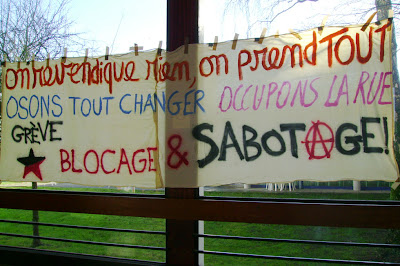 on revendique rien, on prend TOUT
OSONS TOUT CHANGER OCCUPONS LA RUE
GRÈVE
BLOCAGE & SABOTAGE!